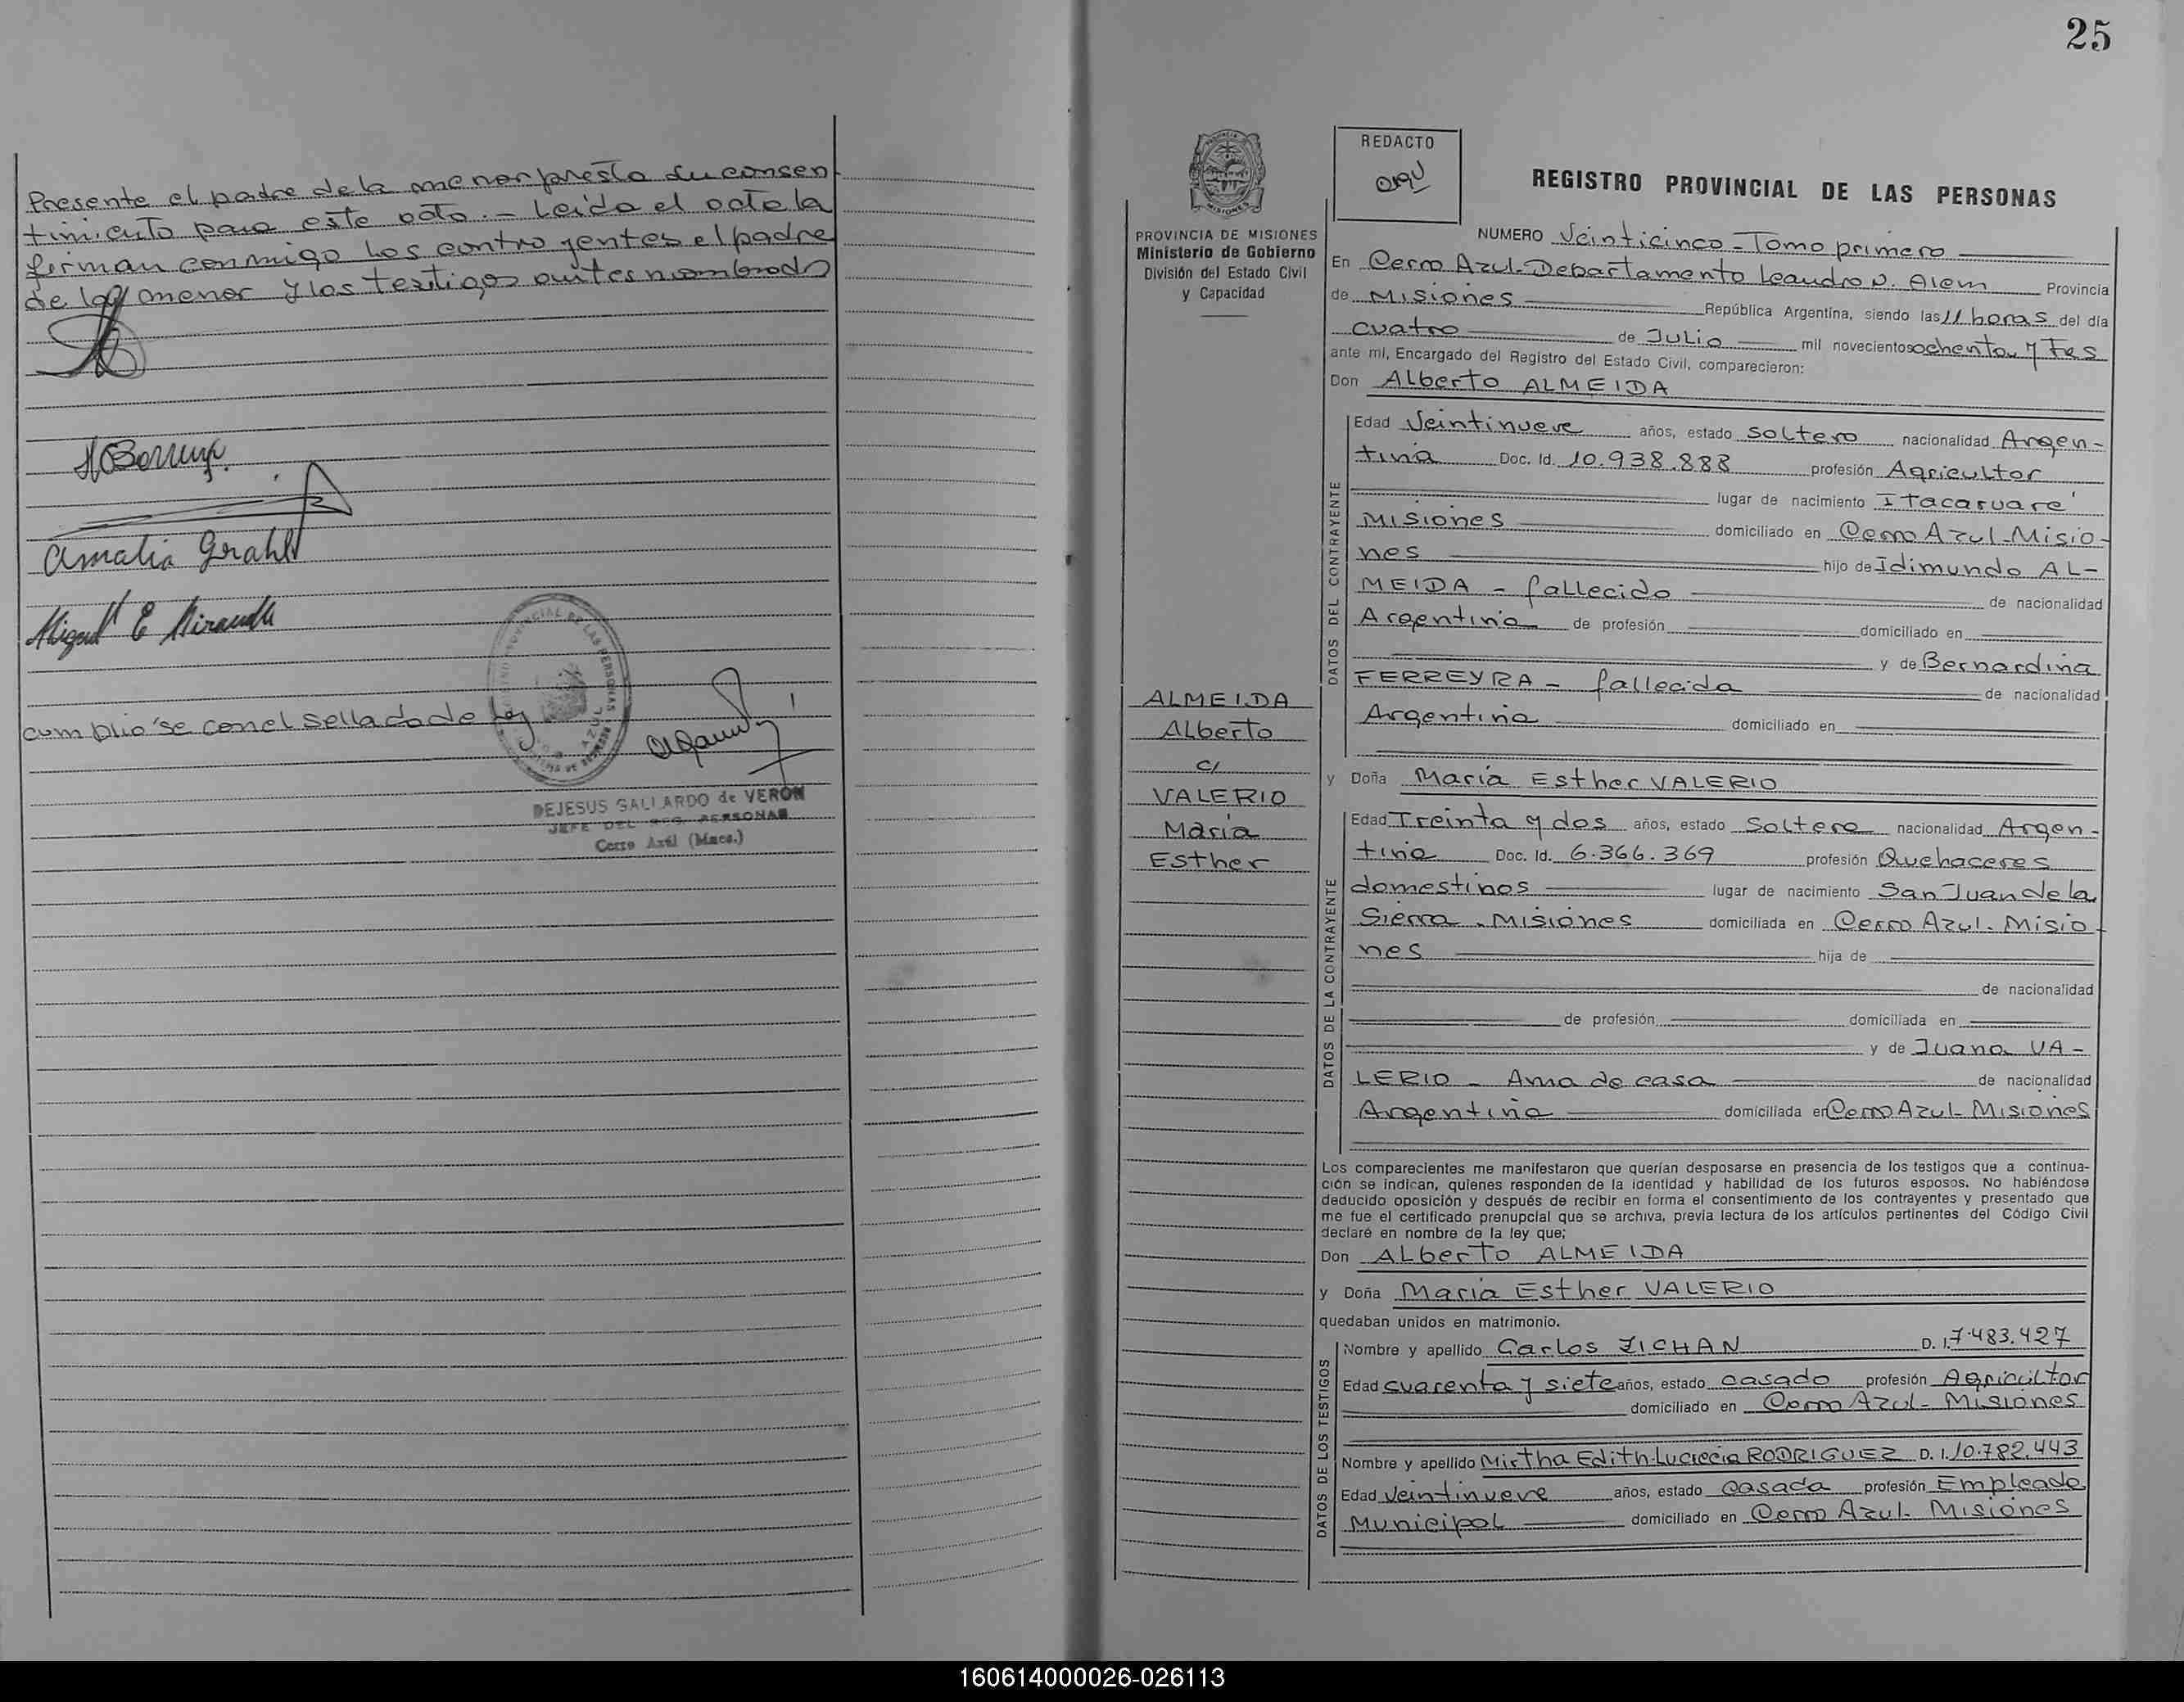 Presente el padre de la menor presta su consen
timiento para este acto. - Leida el acta la
firman conmigo los contrayentes el padre
de la menor y los testigos antes nombrado
Amalia Grahl
Miguel E Miranda
cumplio'se con el sellado de ley
DEJESUS GALLARDO de VERON
JEFE DEL REG. PERSONAS
Cerro Azúl (Mnes.)
25
PROVINCIA DE MISIONES
Ministerio de Gobierno
División del Estado Civil
y Capacidad
ALMEIDA
Alberto
c/
VALERIO
María
Esther
REDACTO
REGISTRO PROVINCIAL DE LAS PERSONAS
NUMERO Veinticinco - Tomo primero
En Cerro Azul - Departamento Leandro N. Alem Provincia
de Misiones República Argentina, siendo las 11 horas del día
cuatro de Julio mil novecientos ochenta y tres
ante mí, Encargado del Registro del Estado Civil, comparecieron:
Don Alberto ALMEIDA
DATOS DEL CONTRAYENTE
Edad Veintinueve años, estado soltero nacionalidad Argen-
tina Doc. Id. 10.938.888 profesión Agricultor
lugar de nacimiento Itacaruaré
Misiones domiciliado en Cerro Azul - Misio-
nes hijo de Idimundo AL-
MEIDA - fallecido de nacionalidad
Argentina de profesión domiciliado en
y de Bernardina
FERREYRA - fallecida de nacionalidad
Argentina domiciliado en
y Doña María Esther VALERIO
DATOS DE LA CONTRAYENTE
Edad Treinta y dos años, estado Soltera nacionalidad Argen-
tina Doc. Id. 6.366.369 profesión Quehaceres
domestinos lugar de nacimiento San Juan de la
Sierra - Misiones domiciliada en Cerro Azul - Misio-
nes hija de
de nacionalidad
de profesión domiciliada en
y de Juana VA-
LERIO - Ama de casa de nacionalidad
Argentina domiciliada en Cerro Azul - Misiones
Los comparecientes me manifestaron que querían desposarse en presencia de los testigos que a continua-
ción se indican, quienes responden de la identidad y habilidad de los futuros esposos. No habiéndose
deducido oposición y después de recibir en forma el consentimiento de los contrayentes y presentado que
me fue el certificado prenupcial que se archiva, previa lectura de los artículos pertinentes del Código Civil
declaré en nombre de la ley que;
Don Alberto ALMEIDA
y Doña María Esther VALERIO
quedaban unidos en matrimonio.
DATOS DE LOS TESTIGOS
Nombre y apellido Carlos ZICHAN D. I. 7.483.427
Edad cuarenta y siete años, estado casado profesión Agricultor
domiciliado en Cerro Azul - Misiones
Nombre y apellido Mirtha Edith Lucrecia RODRIGUEZ D. I. 10.782.443
Edad Veintinueve años, estado casada profesión Empleada
Municipal domiciliado en Cerro Azul - Misiones
160614000026-026113